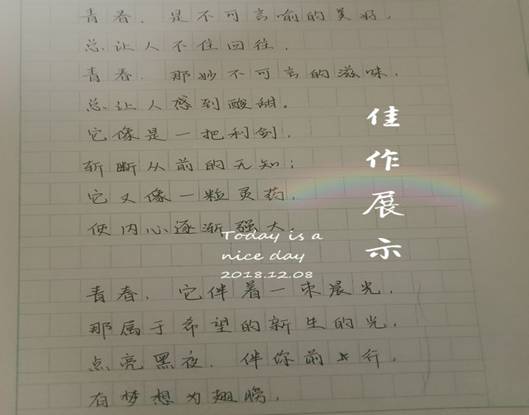 青春，是不可言喻的美好，
总让人不住回往，
青春，那妙不可言的滋味，
总让人感到酸甜。
它像是一把利剑，
斩断从前的无知；
它又像一粒灵药，
使内心逐渐强大。
青春，它伴着一束晨光，
那属于希望的新生的光，
点亮黑夜，伴你前行，
有梦想为翅膀，
佳作展示
Today is a
nice day
2018.12.08